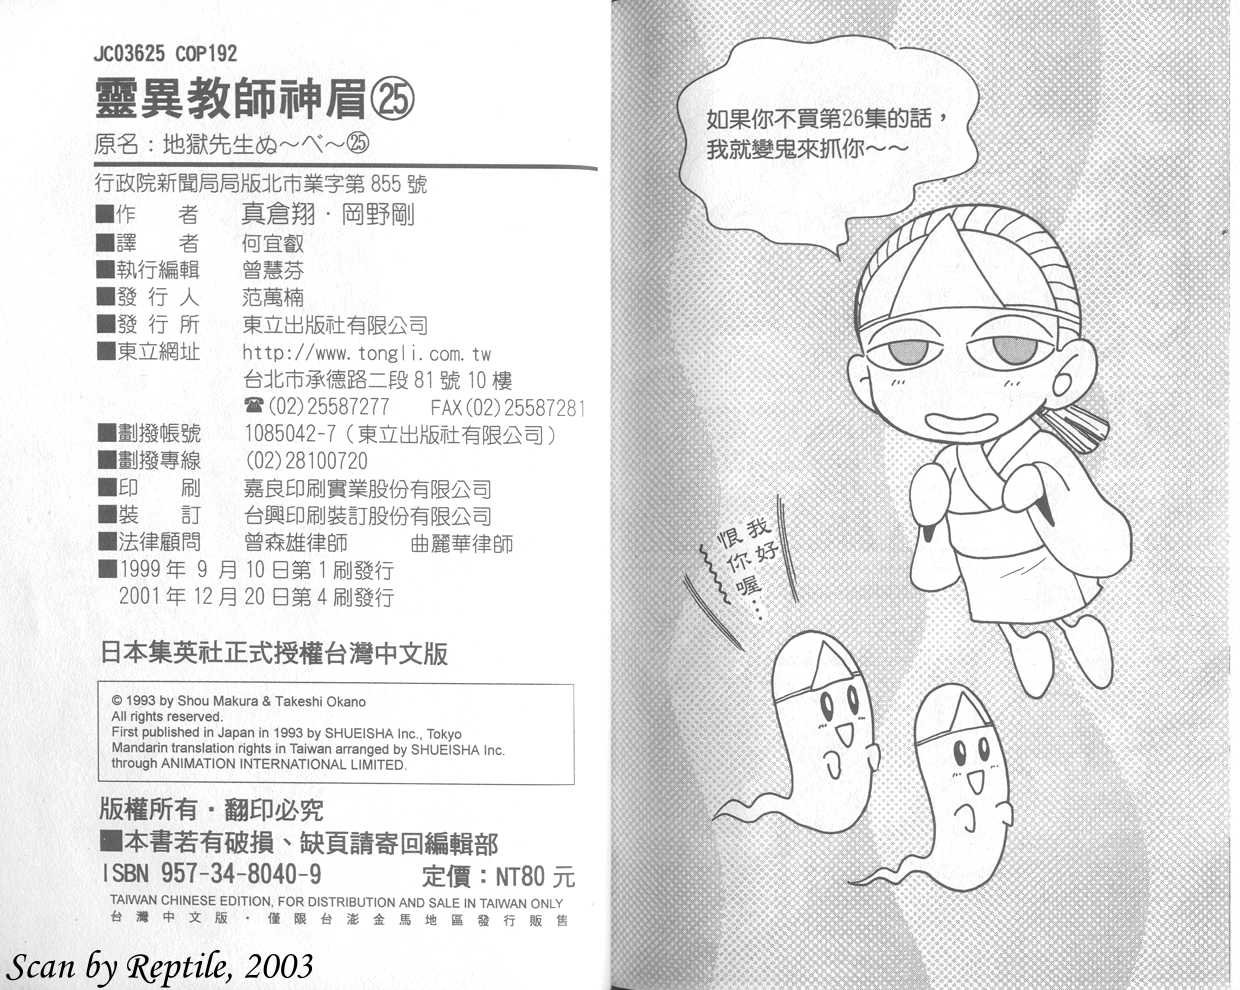 JC03625 COP192
靈異教師神眉㉕
原名：地獄先生ぬ～べ～㉕
行政院新聞局局版北市業字第 855 號
■作　者　真倉翔・岡野剛
■譯　者　何宜叡
■執行編輯　曾慧芬
■發 行 人　范萬楠
■發 行 所　東立出版社有限公司
■東立網址　http://www.tongli.com.tw
台北市承德路二段 81 號 10 樓
☎(02)25587277　FAX(02)25587281
■劃撥帳號　1085042-7（東立出版社有限公司）
■劃撥專線　(02)28100720
■印　刷　嘉良印刷實業股份有限公司
■裝　訂　台興印刷裝訂股份有限公司
■法律顧問　曾森雄律師　曲麗華律師
■1999 年 9 月 10 日第 1 刷發行
2001 年 12 月 20 日第 4 刷發行
日本集英社正式授權台灣中文版
© 1993 by Shou Makura & Takeshi Okano
All rights reserved.
First published in Japan in 1993 by SHUEISHA Inc., Tokyo
Mandarin translation rights in Taiwan arranged by SHUEISHA Inc.
through ANIMATION INTERNATIONAL LIMITED.
版權所有・翻印必究
■本書若有破損、缺頁請寄回編輯部
ISBN 957-34-8040-9　定價：NT80 元
TAIWAN CHINESE EDITION, FOR DISTRIBUTION AND SALE IN TAIWAN ONLY
台灣中文版・僅限台澎金馬地區發行販售
Scan by Reptile, 2003
如果你不買第26集的話，
我就變鬼來抓你～～
我好
恨你喔…